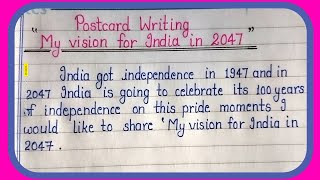 Postcard Writing
" My vision for India in 2047 "
India got independence in 1947 and in
2047 India is going to celebrate its 100 years
of independence on this pride moments I
would like to share 'My vision for India in
2047.